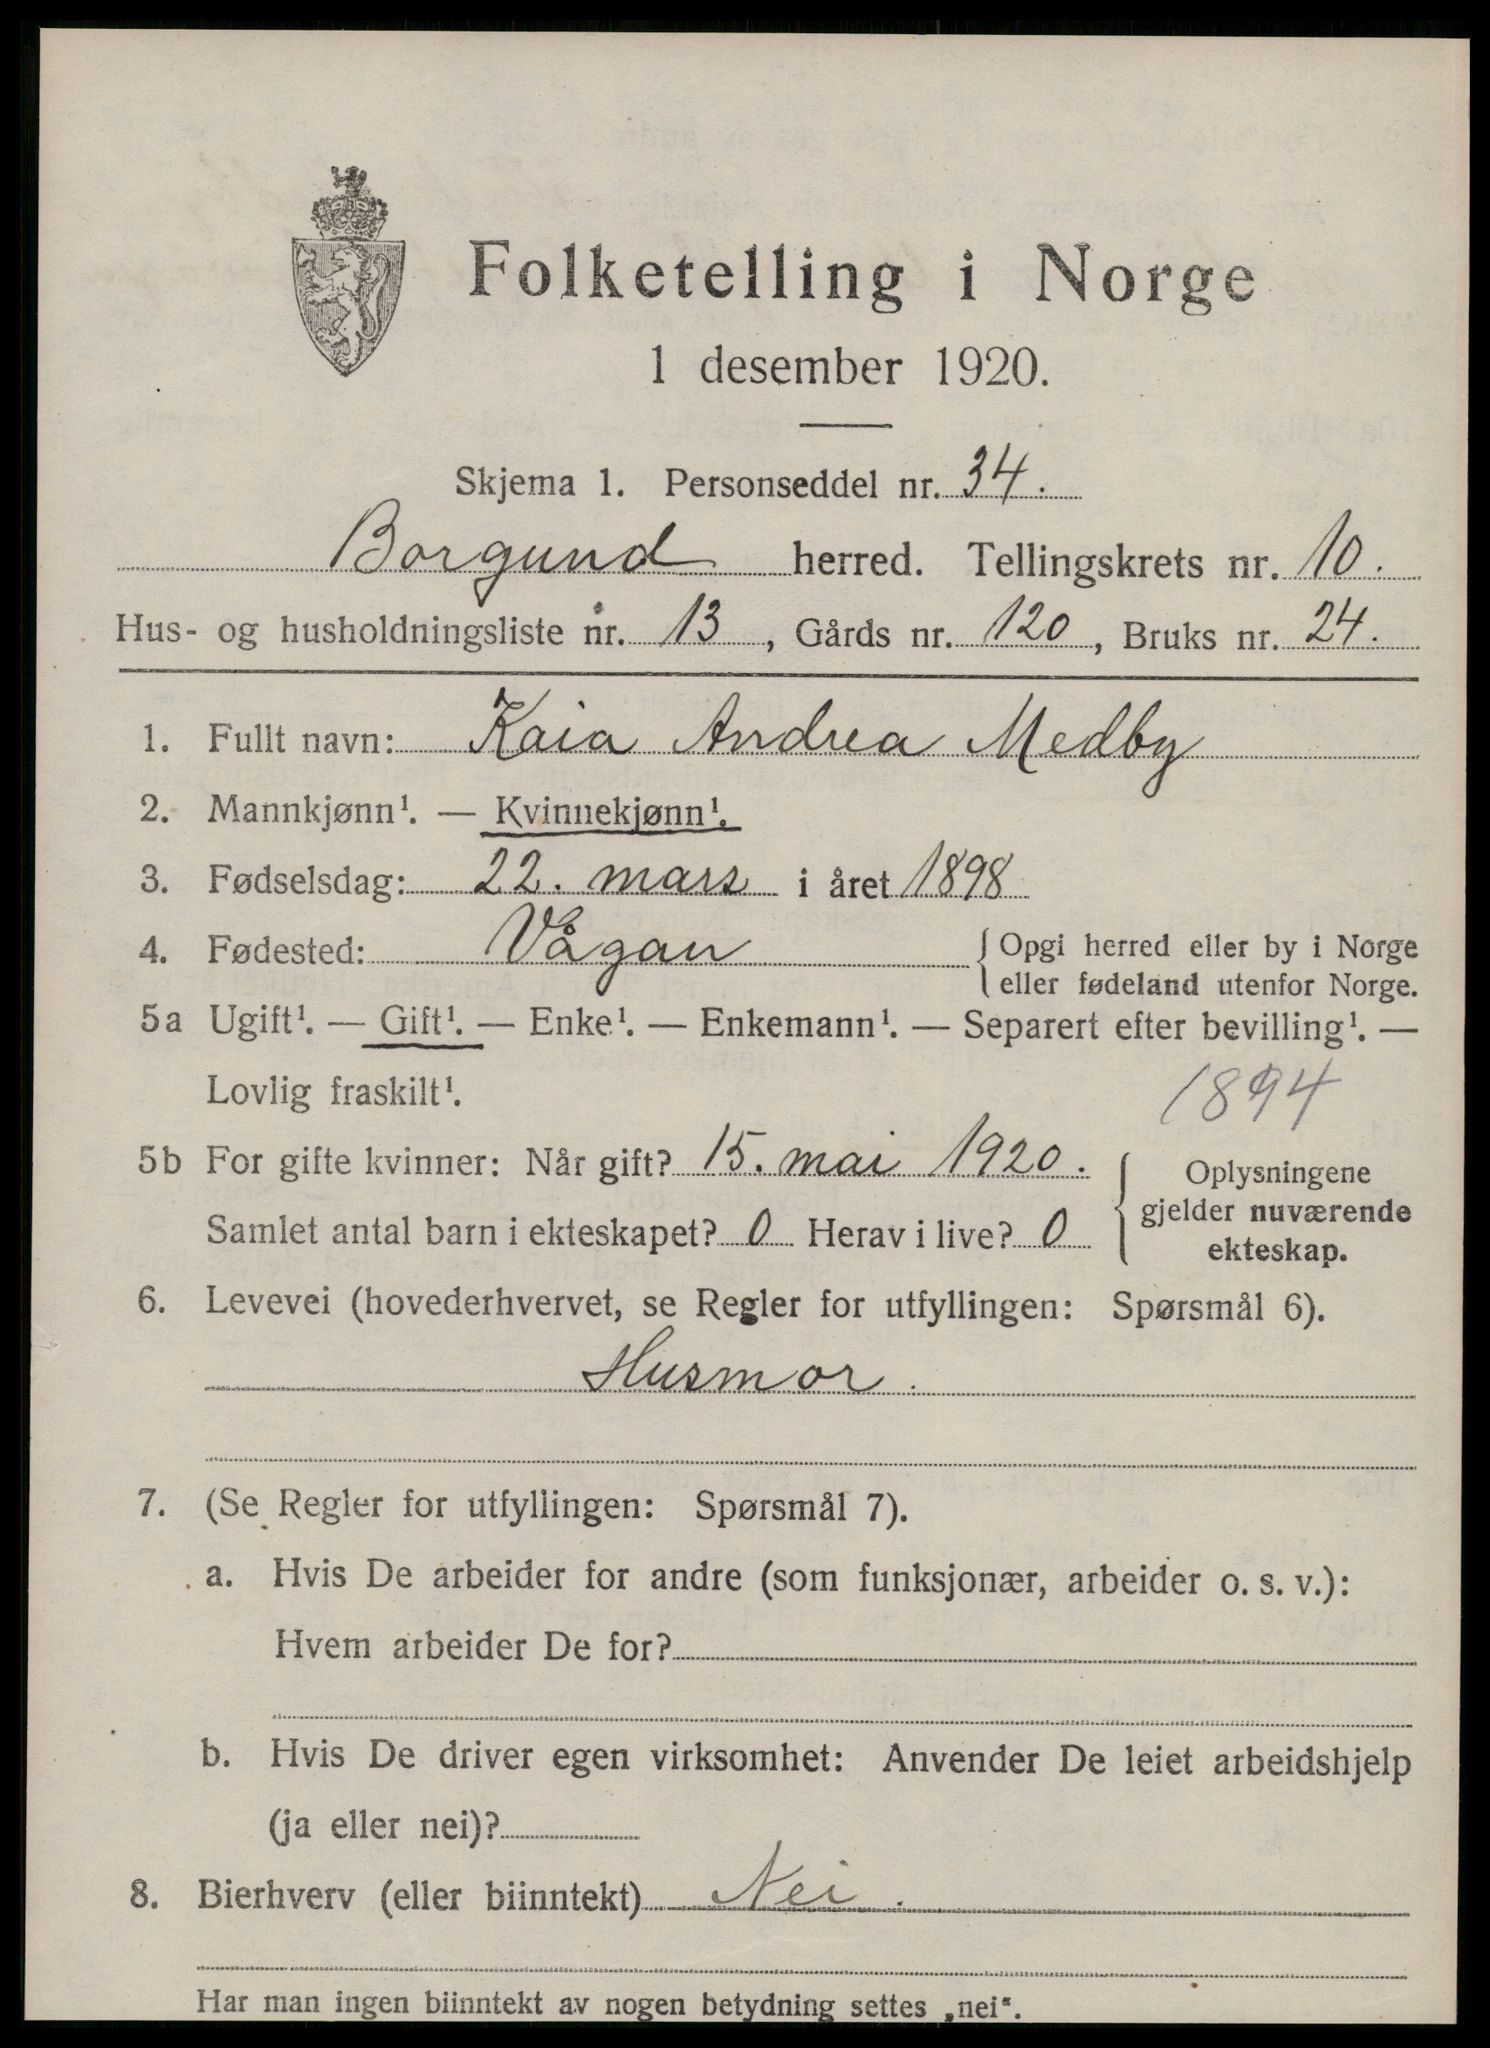 Folketelling i Norge
1 desember 1920.
Skjema 1. Personseddel nr. 34.
Borgund herred. Tellingskrets nr. 10.
Hus- og husholdningsliste nr. 13, Gårds nr. 120, Bruks nr. 24.
1. Fullt navn: Kaia Andrea Medby
2. Mannkjønn¹. — Kvinnekjønn¹.
3. Fødselsdag: 22. mars i året 1898
4. Fødested: Vågan { Opgi herred eller by i Norge
eller fødeland utenfor Norge.
5a Ugift¹. — Gift¹. — Enke¹. — Enkemann¹. — Separert efter bevilling¹. —
Lovlig fraskilt¹.
1894
5b For gifte kvinner: Når gift? 15. mai 1920.
Samlet antal barn i ekteskapet? 0 Herav i live? 0
Oplysningene
gjelder nuværende
ekteskap.
6. Levevei (hovederhvervet, se Regler for utfyllingen: Spørsmål 6).
Husmor.
7. (Se Regler for utfyllingen: Spørsmål 7).
a. Hvis De arbeider for andre (som funksjonær, arbeider o. s. v.):
Hvem arbeider De for?
b. Hvis De driver egen virksomhet: Anvender De leiet arbeidshjelp
(ja eller nei)?
8. Bierhverv (eller biinntekt) Nei.
Har man ingen biinntekt av nogen betydning settes „nei“.